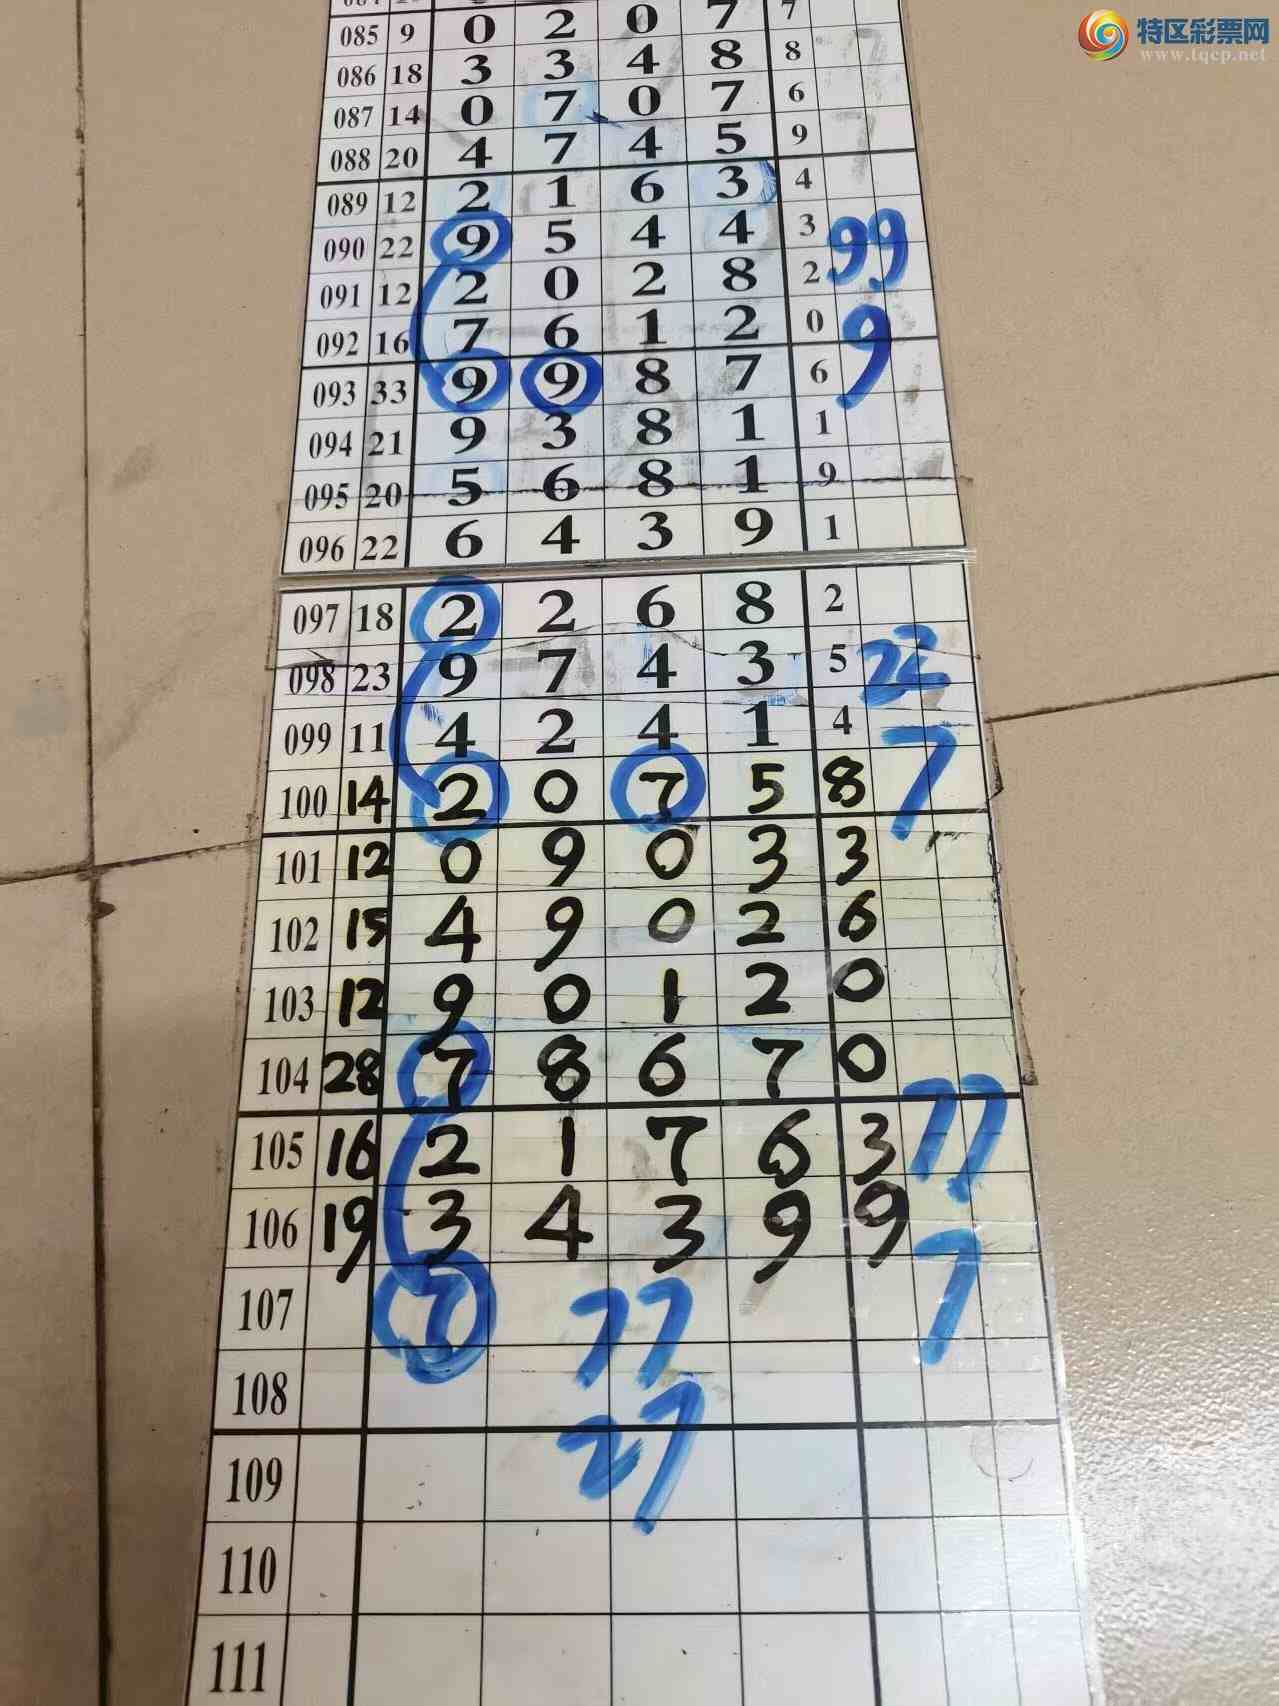 特区彩票网
www.tqcp.net
085 9 0 2 0 7 7
086 18 3 3 4 8 8
087 14 0 7 0 7 6
088 20 4 7 4 5 9
089 12 2 1 6 3 4
090 22 9 5 4 4 3 99
091 12 2 0 2 8 2
092 16 7 6 1 2 0 9
093 33 9 9 8 7 6
094 21 9 3 8 1 1
095 20 5 6 8 1 9
096 22 6 4 3 9 1
097 18 2 2 6 8 2
098 23 9 7 4 3 5 22
099 11 4 2 4 1 4 7
100 14 2 0 7 5 8
101 12 0 9 0 3 3
102 15 4 9 0 2 6
103 12 9 0 1 2 0
104 28 7 8 6 7 0
105 16 2 1 7 6 3 77
106 19 3 4 3 9 9
107 7 77 7
108
109 27
110
111